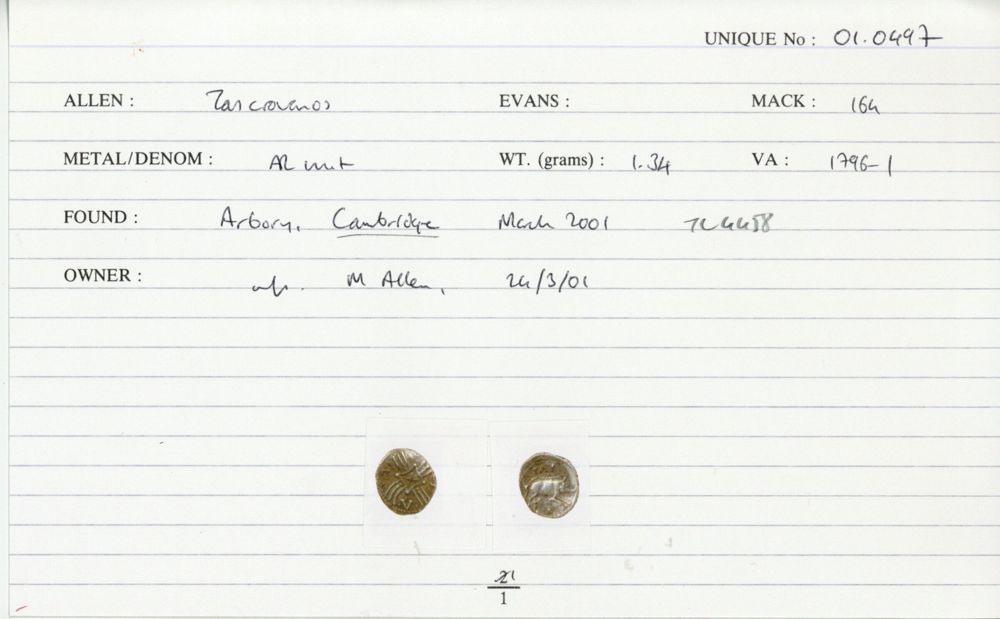 UNIQUE No : 01.0497
ALLEN : Tasciovanos EVANS : MACK : 164
METAL/DENOM : AR unit WT. (grams) : 1.34 VA : 1796-1
FOUND : Arbory, Cambridge March 2001 TL4458
OWNER : M Allen, 24/3/01
1